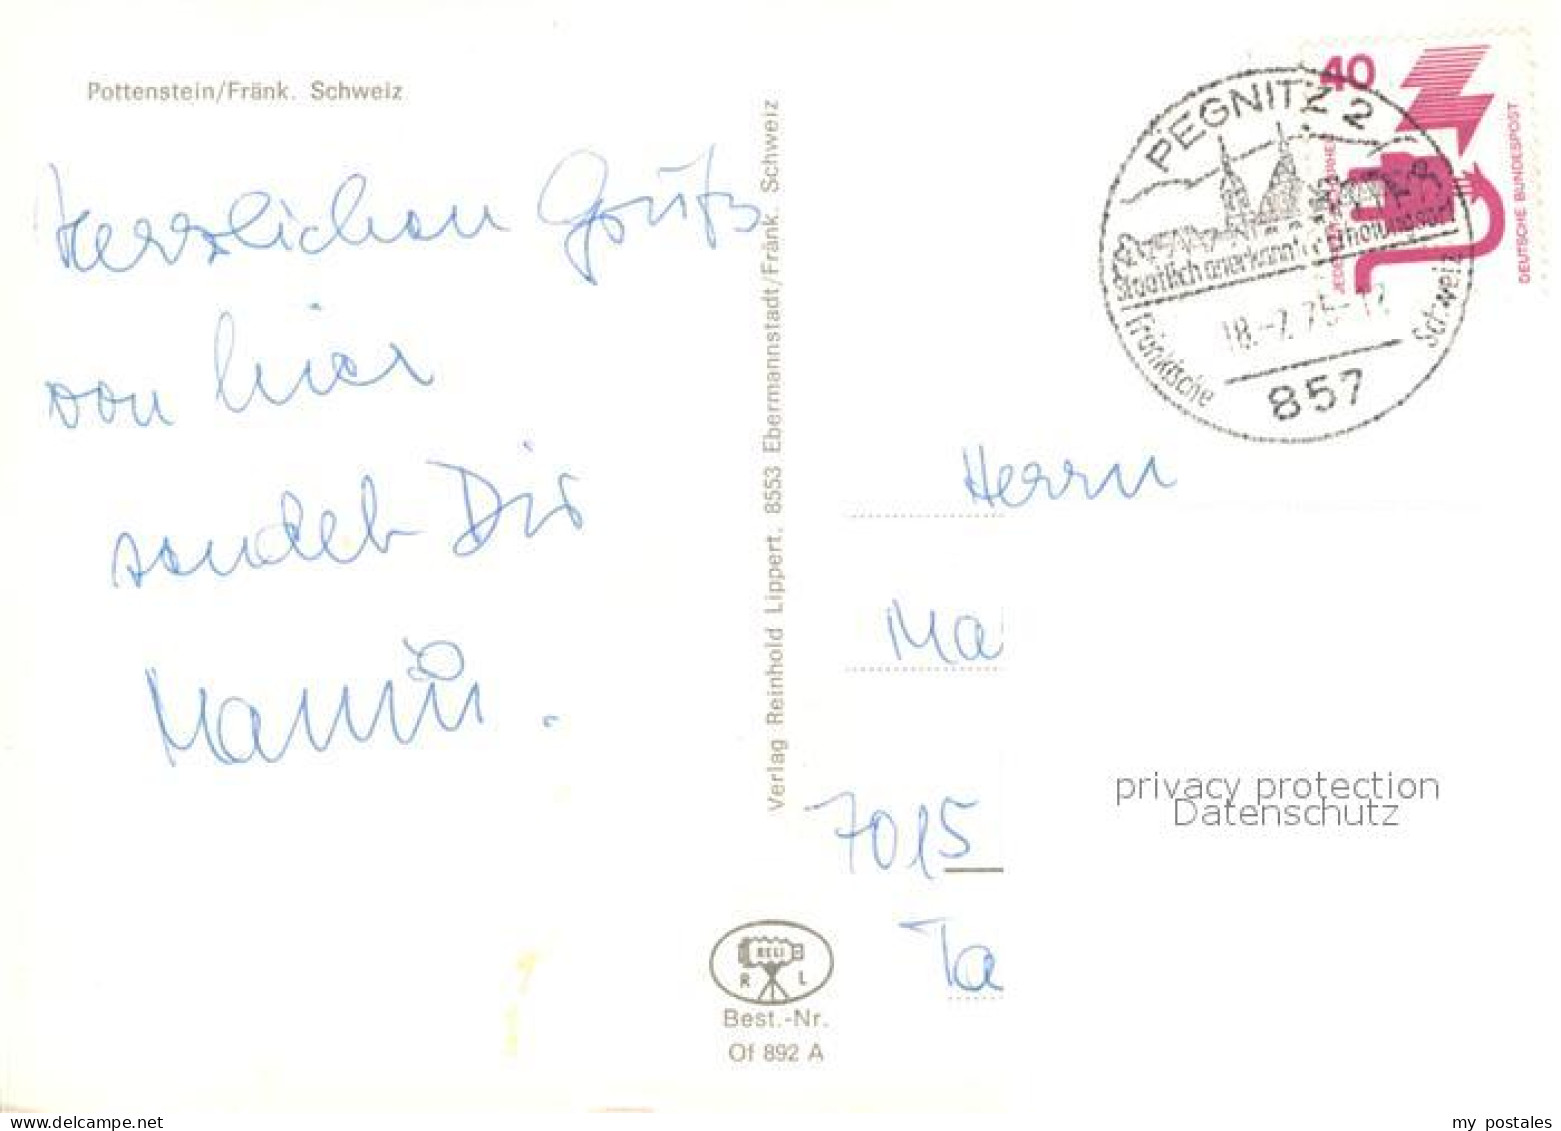 Pottenstein/Fränk. Schweiz
Herzlichen Grüße
von hier
sendet Dir
Verlag Reinhold Lippert, 8553 Ebermannstadt/Fränk. Schweiz
RELI
R L
Best.-Nr.
Of 892 A
40
DEUTSCHE BUNDESPOST
PEGNITZ 2
Staatlich anerkannter Erholungsort
18.-7.75-17
Fränkische Schweiz
857
Herrn
Ma
7015
Ta
privacy protection
Datenschutz
my postales